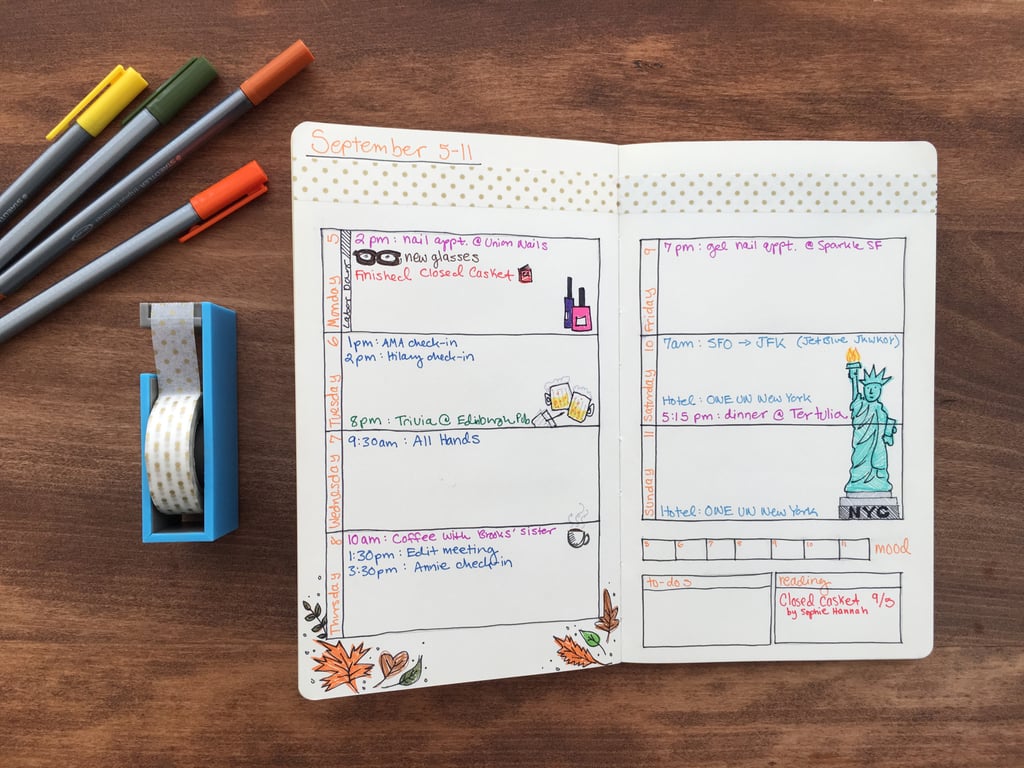 September 5-11
Monday 5
Labor Day
2pm: nail appt. @ Union Nails
new glasses
Finished Closed Casket
Tuesday 6
1pm: AMA check-in
2pm: Hilary check-in
8pm: Trivia @ Edinburgh Pub
Wednesday 7
9:30am: All Hands
Thursday 8
10am: Coffee with Brooks' sister
1:30pm: Edit meeting
3:30pm: Annie check-in
Friday 9
7pm: gel nail appt. @ Sparkle SF
Saturday 10
7am: SFO → JFK (JetBlue
Hotel: ONE UN New York
5:15 pm: dinner @ Tertulia
Sunday 11
Hotel: ONE UN New York
NYC
5 6 7 8 9 10 11 mood
to-dos
reading
Closed Casket 9/5
by Sophie Hannah